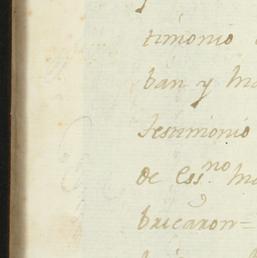 timonio
ban y
testimonio
de Ess.no
bricaron=